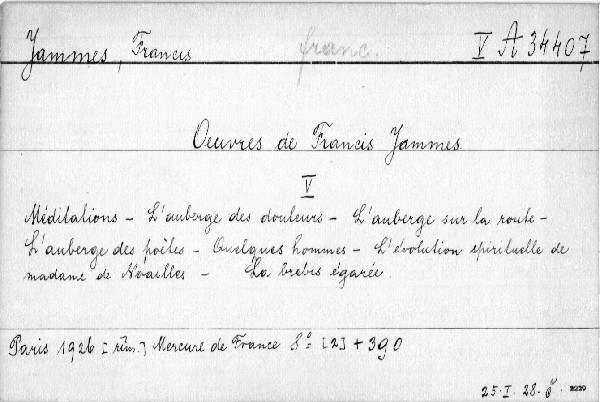 Jammes, Francis franc. V A 34407
Oeuvres de Francis Jammes
V
Méditations - L'auberge des douleurs - L'auberge sur la route -
L'auberge des poètes - Quelques hommes - L'évolution spirituelle de
madame de Noailles - La brebis égarée
Paris 1926 [rím.] Mercure de France 8° [2] + 390
25. I. 28. č. 2220